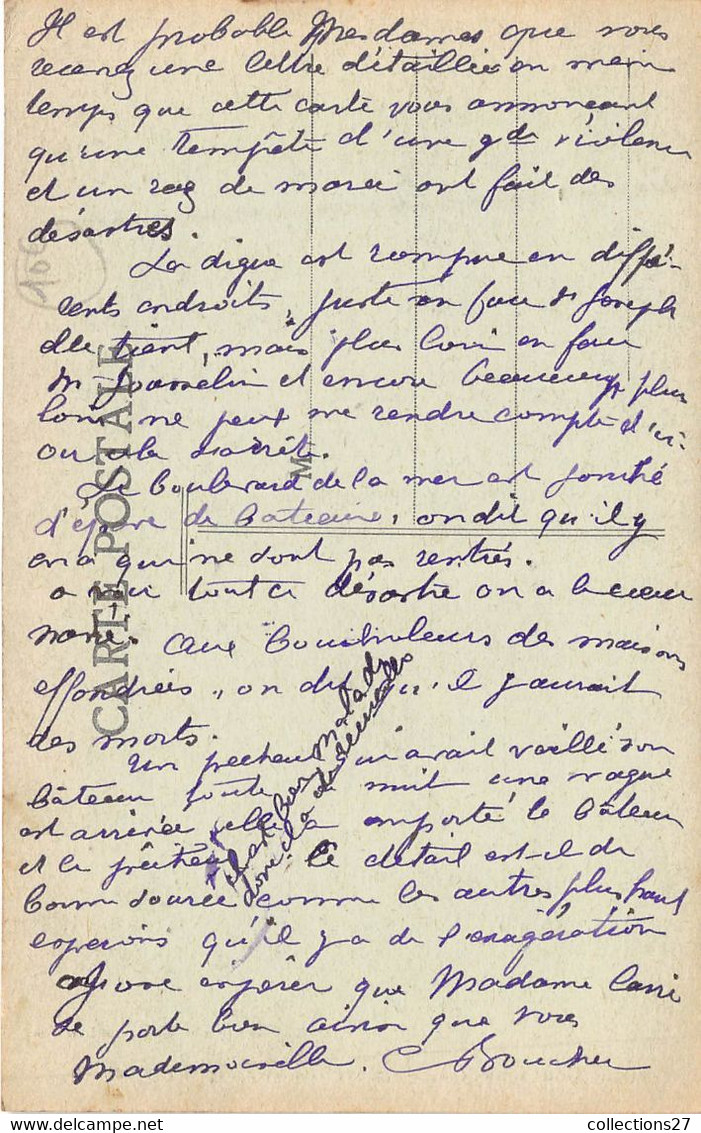 Il est probable Mesdames que vous
recevez une lettre détaillée en mem
temps que cette carte vous annonçant
qu'une tempête d'une gde violence
et un raz de marée ont fait des
désastres.
La digue est rompue en diffé-
rents endroits, juste en face St Joseph
elle tient, mais plus loin en face
M et encore beaucoup plus
loin ne peux me rendre compte d'ici
ou cela s'arrête.
Le boulevard de la mer est jonché
d'épave de bateaux, on dit qu'il y
en a qui ne sont pas rentrés.
a voir tout ce désastre on a le cœur
navré. aux Boucholeurs des maisons
effondrées, on dit qu'il y aurait
des morts.
Un pecheur qui avait veillé son
bâteau toute la nuit une vague
est arrivée elle a emporté le bâteau
et le
le détail est-il de
bonne source comme les autres plus haut
esperons qu'il y a de l'exagération
J'ose espérer que Madame
se porte bien ainsi que vous
Mademoiselle. Boucher
CARTE POSTALE
M
106
collections27